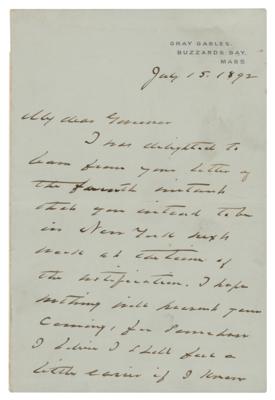 GRAY GABLES,
BUZZARDS BAY,
MASS.
July 15. 1892
My dear Governor
I was delighted to
learn from your letter of
the fourth instant
that you intend to be
in New York next
week at the time of
the notification. I hope
nothing will prevent your
coming, for somehow
I believe I shall feel a
little easier if I know